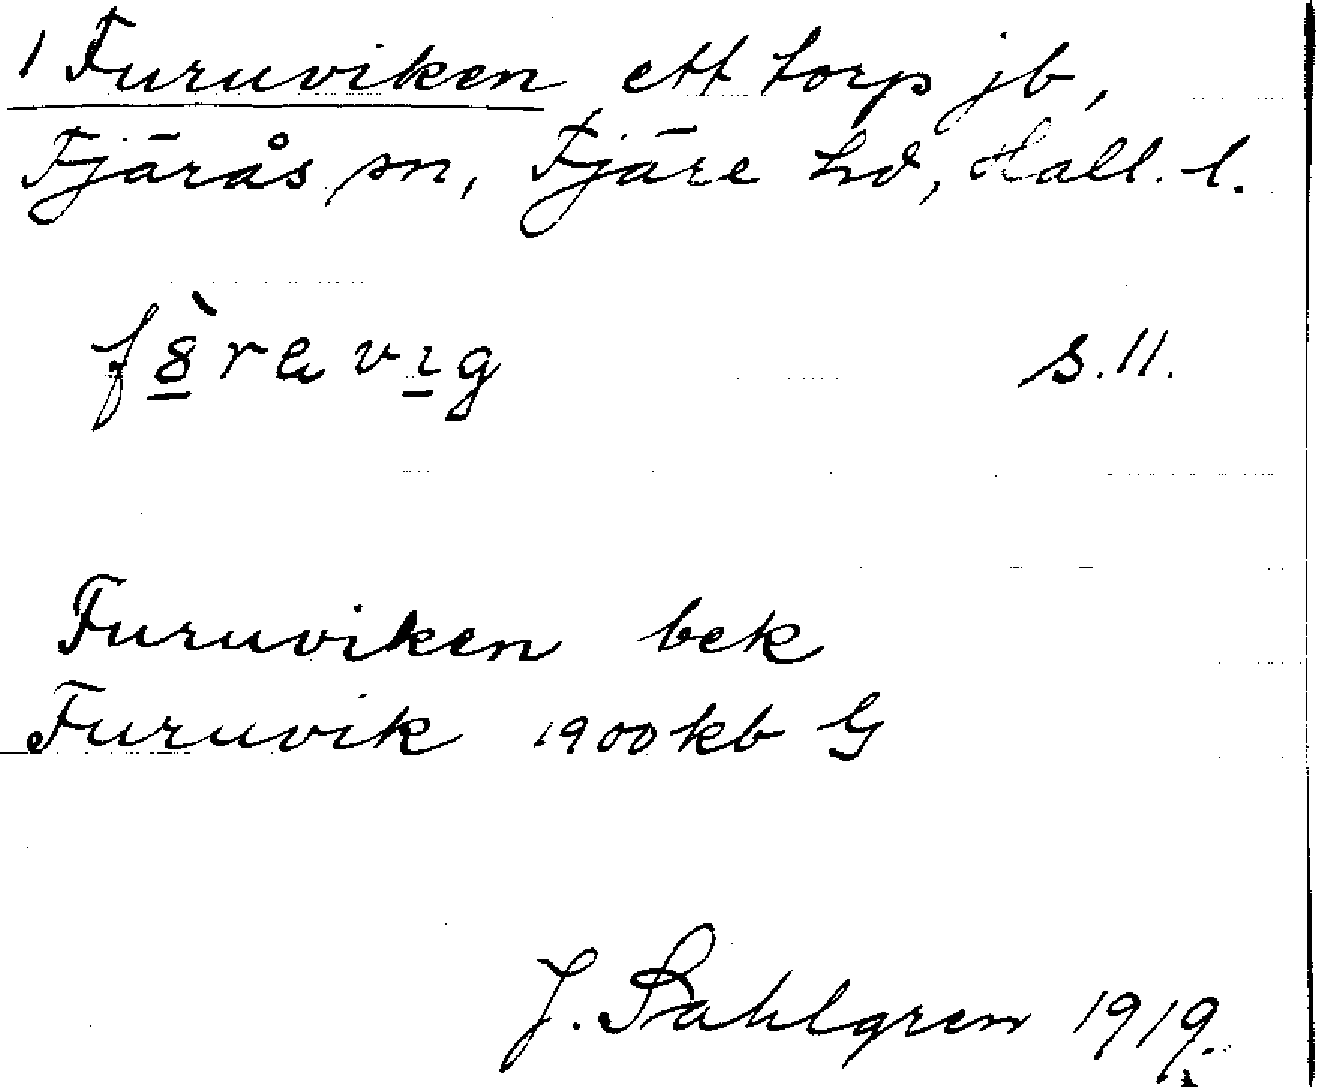 1 Furuviken ett torp jb,
Fjärås sn, Fjäre hd, Hall. l.
s.11.
Furuviken bek
Furuvik 1900 kb G
J. Sahlgren 1919.